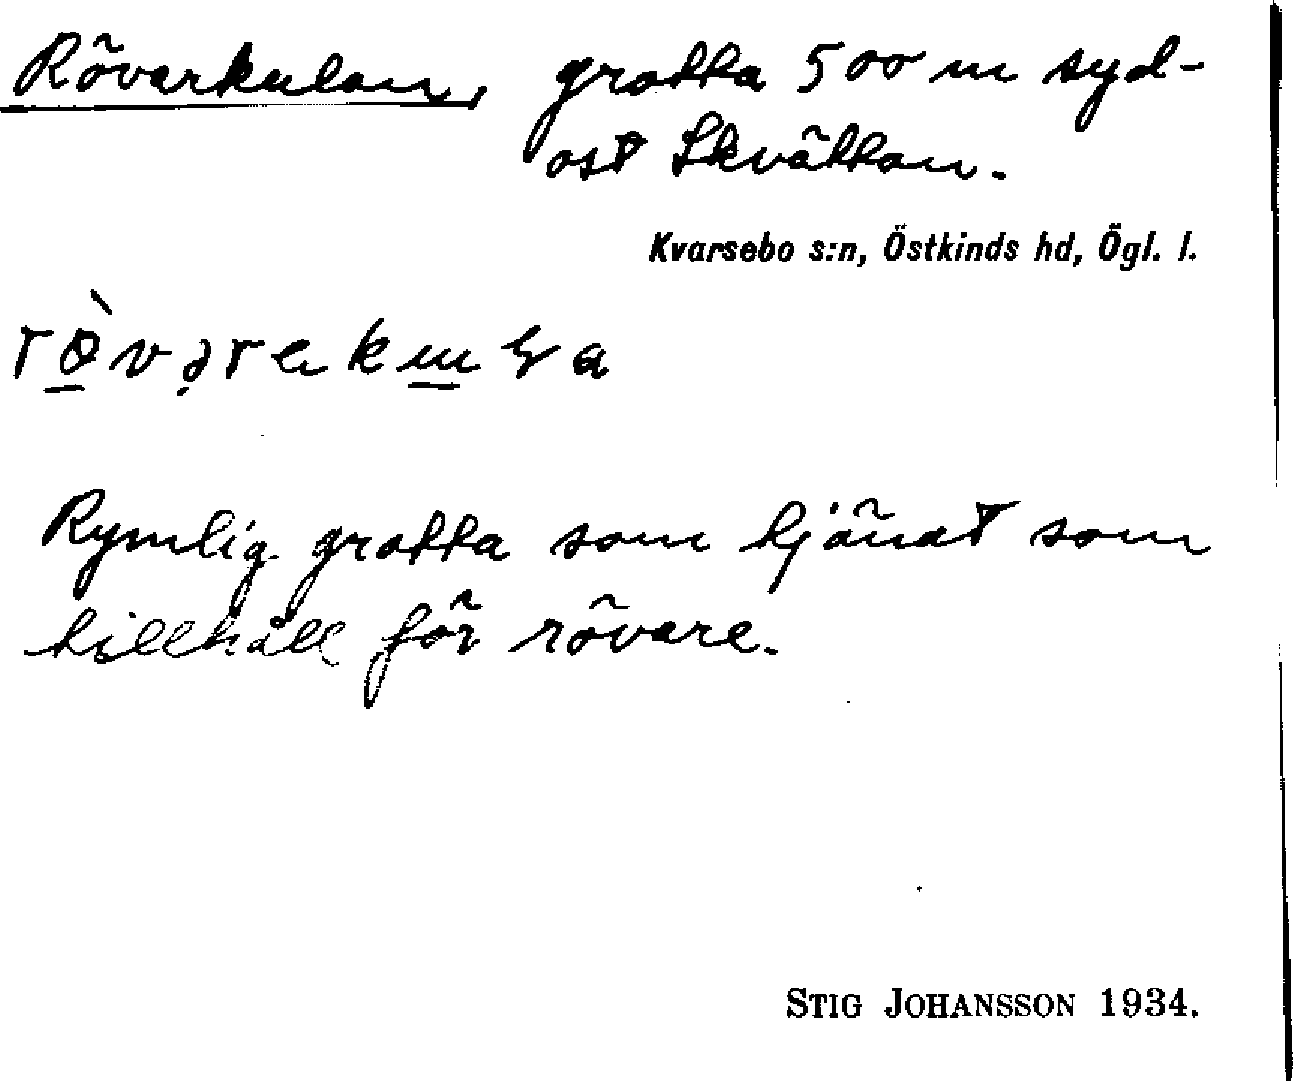 Rövarkulan, grotta 500 m syd-
ost Skvättan.
Kvarsebo s:n, Östkinds hd, Ögl. l.
Rymlig grotta som tjänat som
tillhåll för rövare.
STIG JOHANSSON 1934.